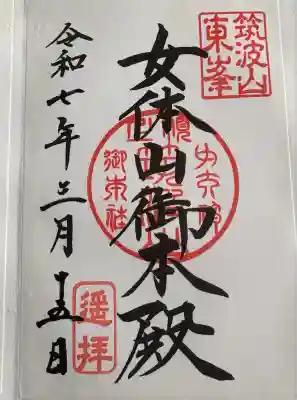 筑波山
東峯
女体山御本殿
令和七年三月十五日
遥拝